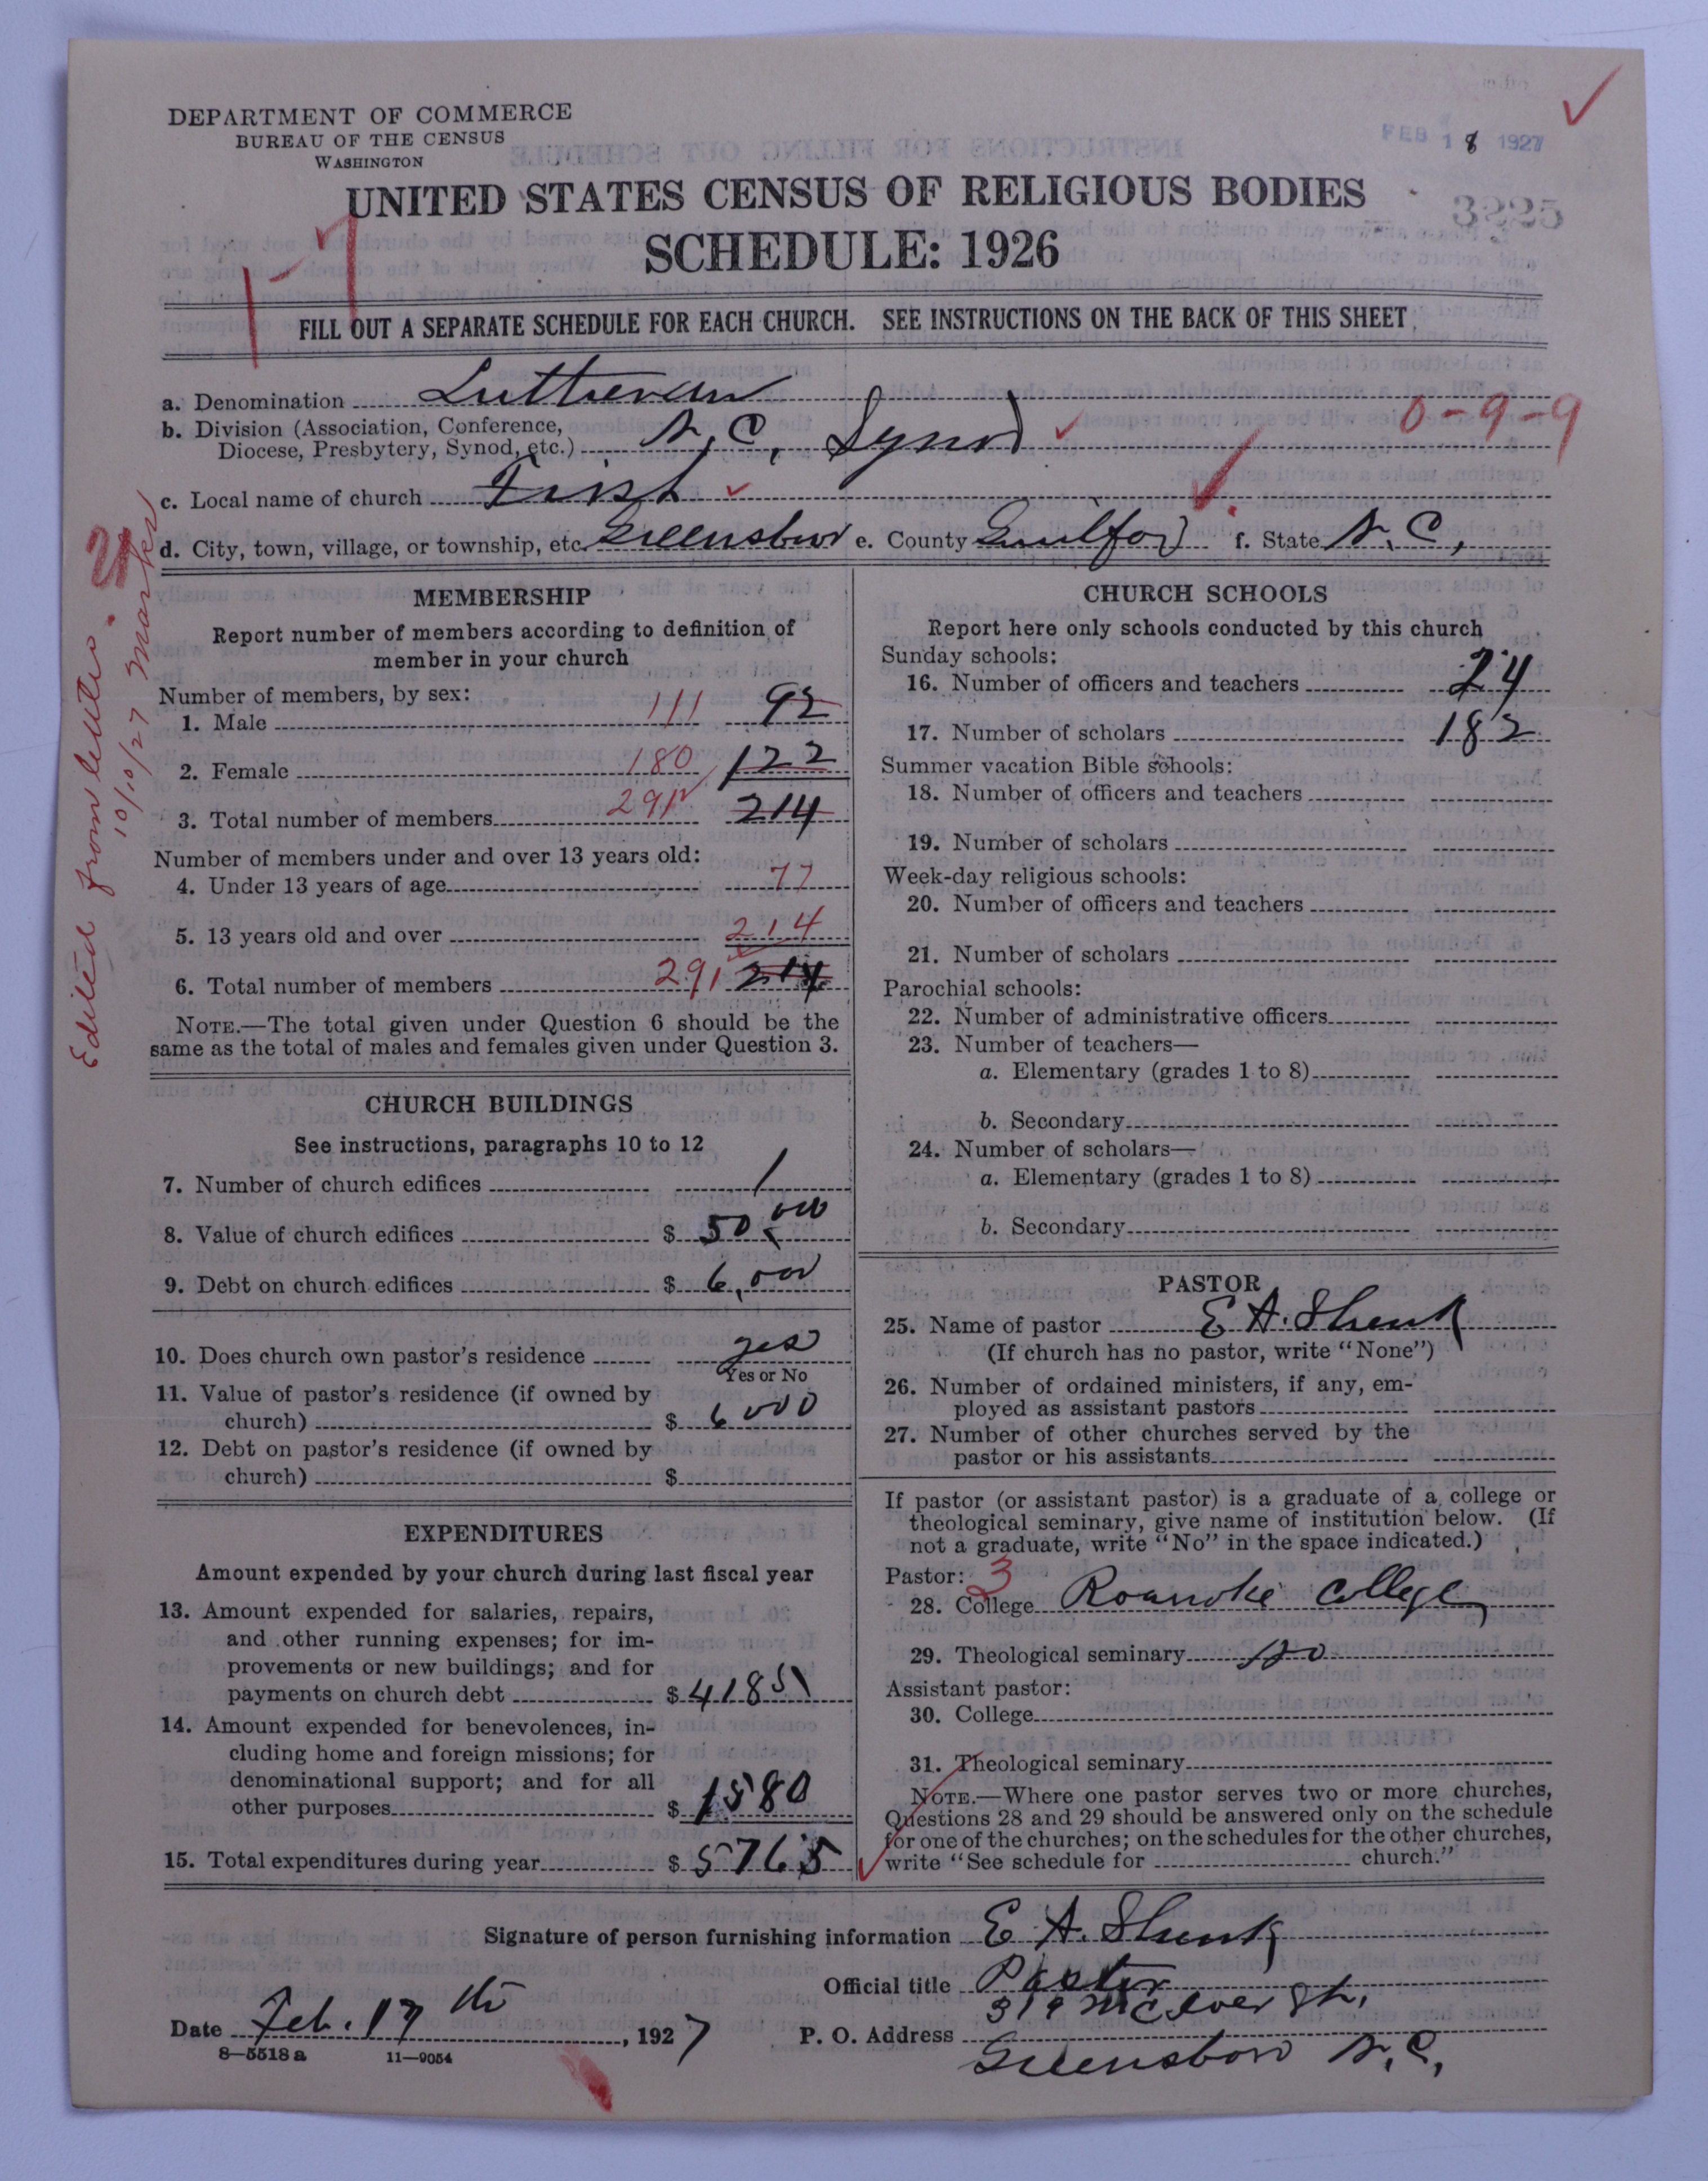 DEPARTMENT OF COMMERCE
BUREAU OF THE CENSUS
WASHINGTON
FEB 18 1927
3225
UNITED STATES CENSUS OF RELIGIOUS BODIES
SCHEDULE: 1926
1-7
FILL OUT A SEPARATE SCHEDULE FOR EACH CHURCH. SEE INSTRUCTIONS ON THE BACK OF THIS SHEET
a. Denomination Lutheran
b. Division (Association, Conference,
Diocese, Presbytery, Synod, etc.) N.C. Synod 0-9-9
c. Local name of church First
d. City, town, village, or township, etc. Greensboro e. County Guilford f. State N.C.
Edited from letter. 10/10/27
MEMBERSHIP
Report number of members according to definition of
member in your church
Number of members, by sex:
1. Male 111 92
2. Female 180 122
3. Total number of members 291 214
Number of members under and over 13 years old:
4. Under 13 years of age 77
5. 13 years old and over 214
6. Total number of members 291 214
NOTE.—The total given under Question 6 should be the
same as the total of males and females given under Question 3.
CHURCH BUILDINGS
See instructions, paragraphs 10 to 12
7. Number of church edifices 1
8. Value of church edifices $ 50,000
9. Debt on church edifices $ 6,000
10. Does church own pastor's residence yes
Yes or No
11. Value of pastor's residence (if owned by
church) $ 6000
12. Debt on pastor's residence (if owned by
church) $
EXPENDITURES
Amount expended by your church during last fiscal year
13. Amount expended for salaries, repairs,
and other running expenses; for im-
provements or new buildings; and for
payments on church debt $ 4185
14. Amount expended for benevolences, in-
cluding home and foreign missions; for
denominational support; and for all
other purposes $ 1580
15. Total expenditures during year $ 5765
CHURCH SCHOOLS
Report here only schools conducted by this church
Sunday schools:
16. Number of officers and teachers 24
17. Number of scholars 182
Summer vacation Bible schools:
18. Number of officers and teachers
19. Number of scholars
Week-day religious schools:
20. Number of officers and teachers
21. Number of scholars
Parochial schools:
22. Number of administrative officers
23. Number of teachers—
a. Elementary (grades 1 to 8)
b. Secondary
24. Number of scholars—
a. Elementary (grades 1 to 8)
b. Secondary
PASTOR
25. Name of pastor E A. Shenk
(If church has no pastor, write "None")
26. Number of ordained ministers, if any, em-
ployed as assistant pastors
27. Number of other churches served by the
pastor or his assistants
If pastor (or assistant pastor) is a graduate of a college or
theological seminary, give name of institution below. (If
not a graduate, write "No" in the space indicated.)
Pastor: 3
28. College Roanoke College
29. Theological seminary No
Assistant pastor:
30. College
31. Theological seminary
NOTE.—Where one pastor serves two or more churches,
Questions 28 and 29 should be answered only on the schedule
for one of the churches; on the schedules for the other churches,
write "See schedule for church."
Signature of person furnishing information E A. Shenk
Official title Pastor
319 McIver St.
Date Feb. 17th, 1927 P. O. Address
Greensboro N.C.
8—5518 a 11—9054